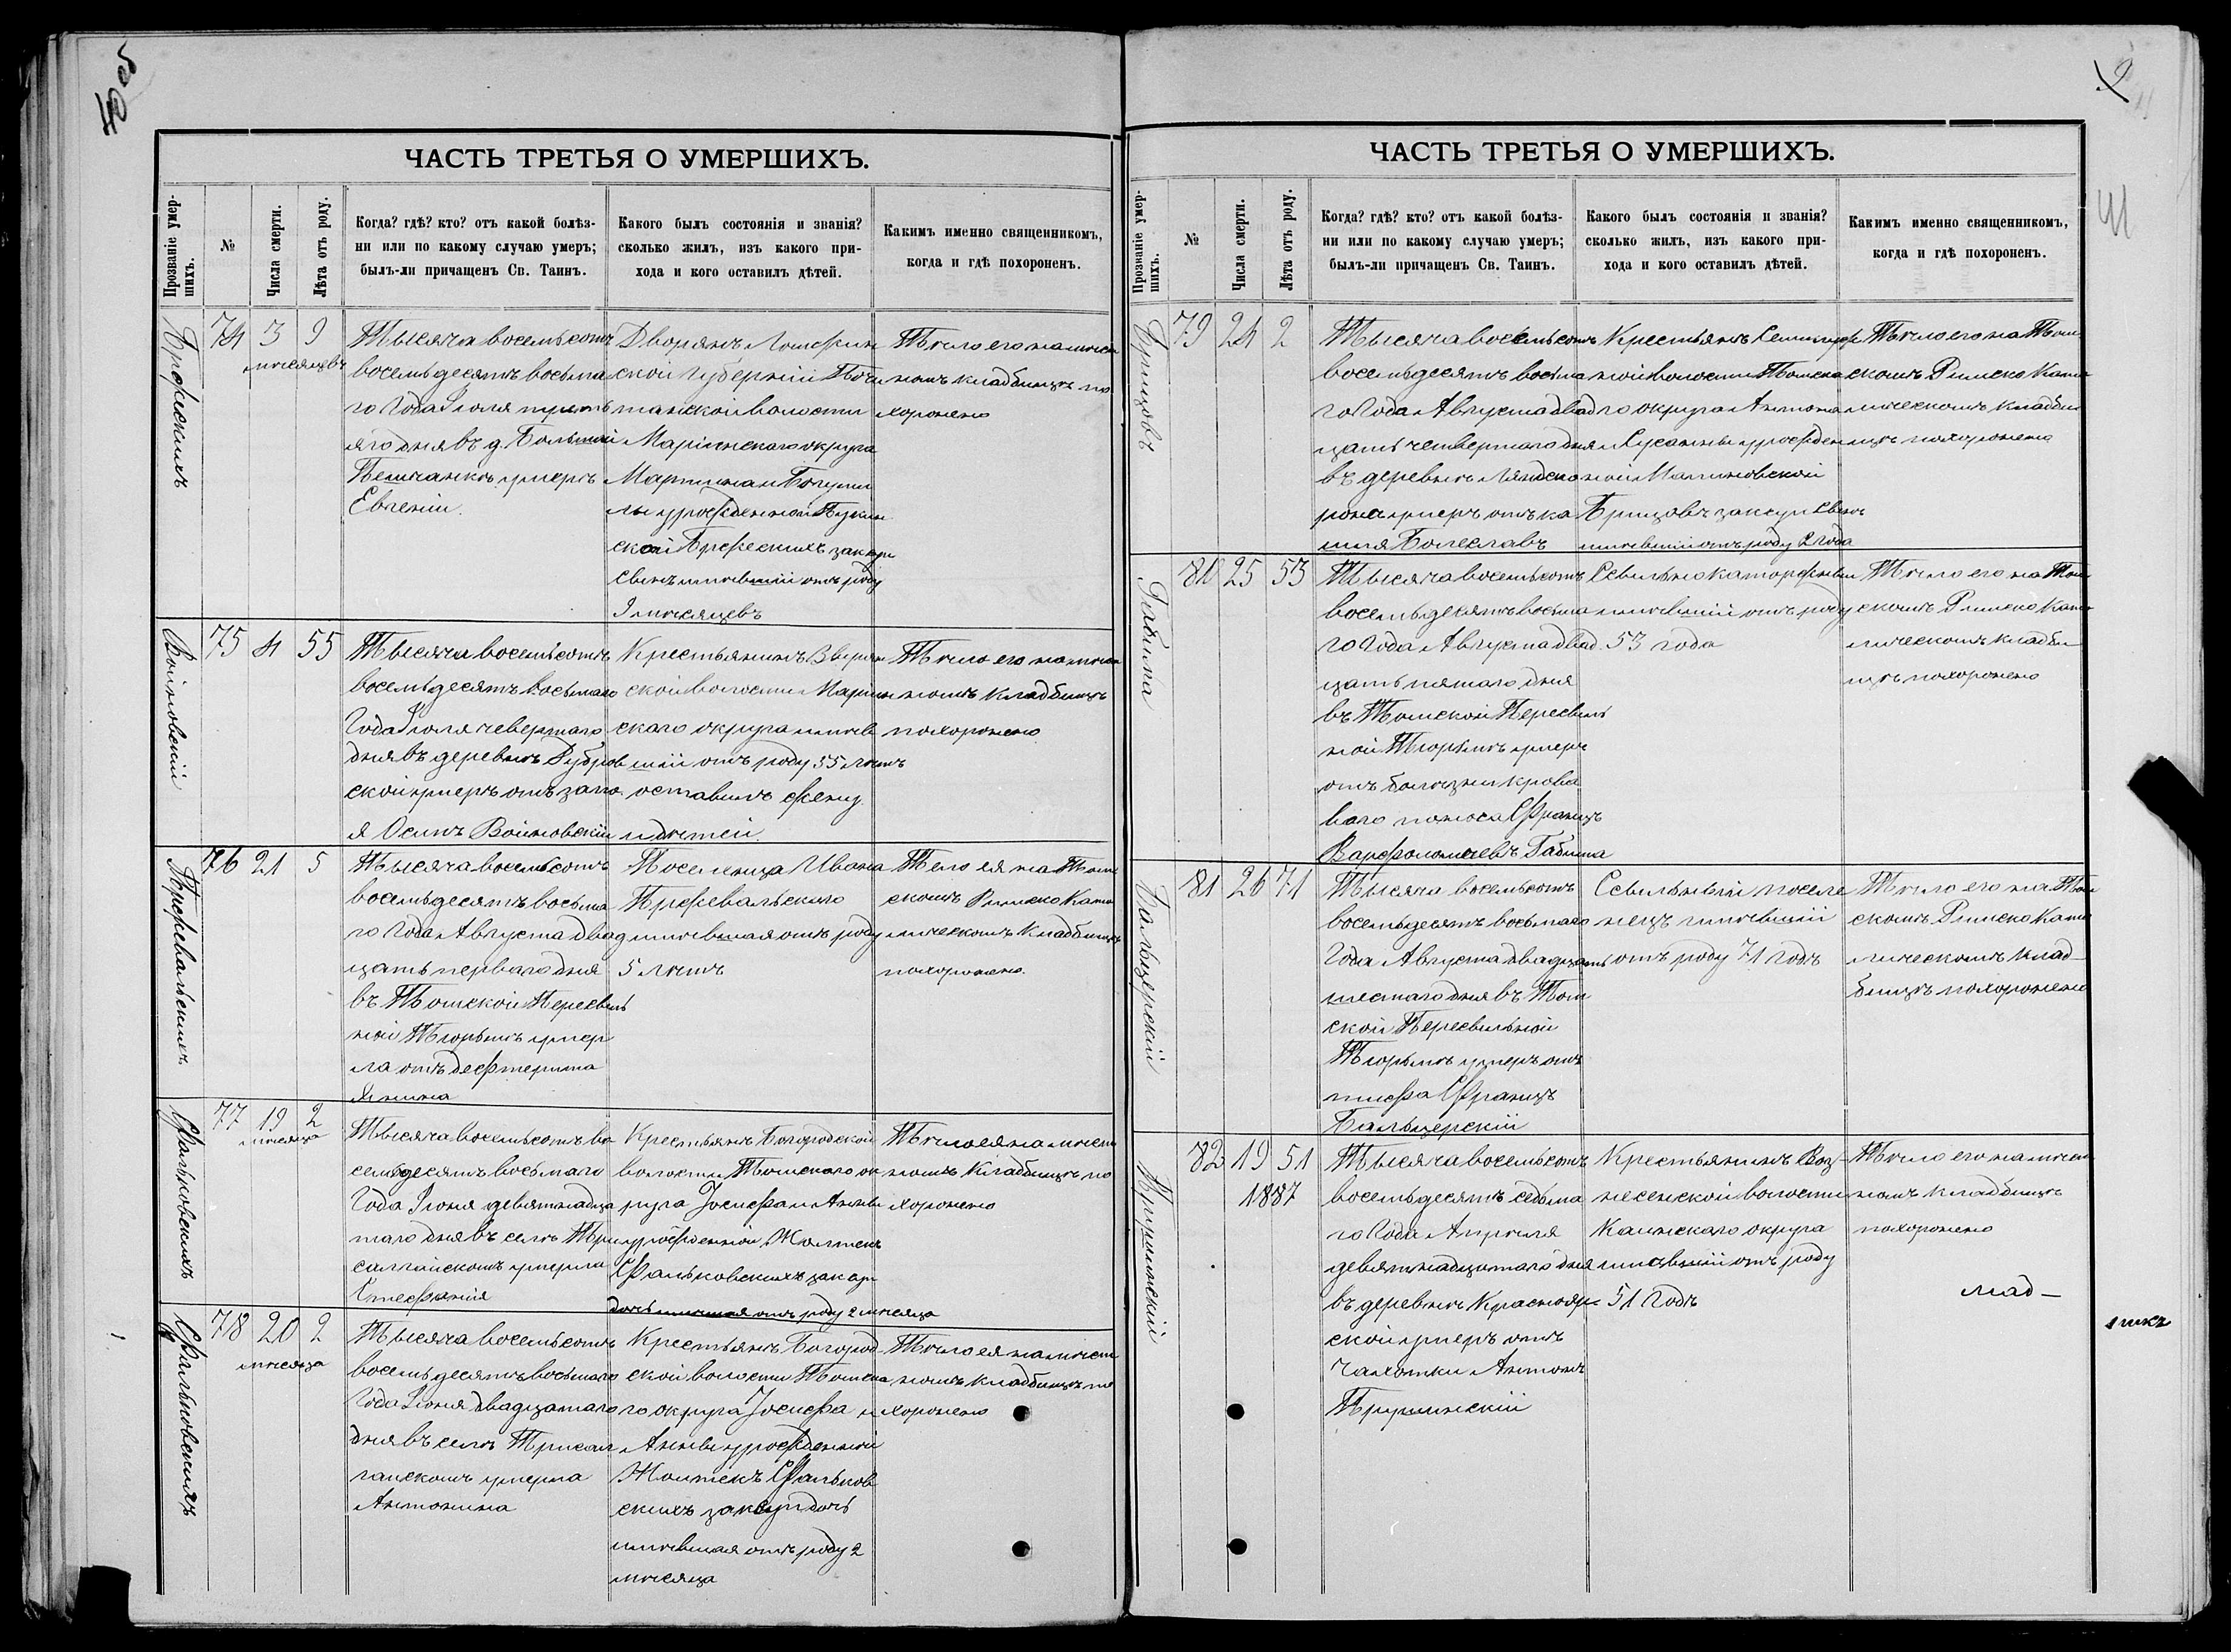 40 об
ЧАСТЬ ТРЕТЬЯ О УМЕРШИХЪ.
Прозваніе умер-
шихъ.
№
Числа смерти.
Лѣта отъ роду.
Когда? гдѣ? кто? отъ какой болѣз-
ни или по какому случаю умеръ;
былъ-ли причащенъ Св. Таинъ.
Какого былъ состоянія и званія?
сколько жилъ, изъ какого при-
хода и кого оставилъ дѣтей.
Какимъ именно священникомъ,
когда и гдѣ похороненъ.
74
3
9
мѣсяцевъ
Тысяча восемьсотъ
восемьдесятъ восьма
го Года Іюля третъ
яго дня въ д. Большой
Песчанкѣ умеръ
Евгеній.
Дворянъ
ской Губерніи Почи
танской волости
Маріинскаго округа
Мартина и Богуми
лы урожденной
ской закон
сынъ имѣвшій отъ роду
9 мѣсяцевъ
Тѣло его на мѣст
номъ кладбищѣ по
хоронено
Войновскій
75
4
55
Тысяча восемьсотъ
восемьдесятъ восьмаго
Года Іюля чевертаго
дня въ деревнѣ Дубров
ской умеръ отъ запо
я Осипъ Войновскій
Крестьянинъ
ской волости Маріин
скаго округа имѣв
шій отъ роду 55 лѣтъ
оставилъ жену
и дѣтей
Тѣло его на мѣст
номъ кладбищѣ
похоронено
Пржевальскихъ
76
21
5
Тысяча восемьсотъ
восемьдесятъ восьма
го Года Августа двад
цать перваго дня
въ Томской Пересыль
ной Тюрьмѣ умер
ла отъ дефтерита
Янина
Поселенца Ивана
Пржевальскаго
имѣвшая отъ роду
5 лѣтъ
Тело ея на Том
скомъ Римско Като
лическомъ Кладбищѣ
похоронено
Фальковскихъ
77
19
2
мѣсяца
Тысяча восемьсотъ во
семьдесятъ восьмаго
Года Іюня девятнадца
таго дня въ селѣ Три
салтайскомъ умерла
Стефанія
Крестьянъ Богородской
волости Томскаго ок
руга Іосифа и Анны
урожденной Жолтекъ
Фальковскихъ закон
дочь имѣвшая отъ роду 2 мѣсяца
Тѣло ея на мѣст
номъ Кладбищѣ по
хоронено
Фальковскихъ
78
20
2
мѣсяца
Тысяча восемьсотъ
восемьдесятъ восьмаго
Года Іюня двадцатаго
дня въ селѣ Трисал
таискомъ умерла
Антонина
Крестьянъ Богород
ской волости Томска
го округа Іосифа и
Анны урожденной
Жолтекъ Фальков
скихъ закон дочь
имѣвшая отъ роду 2
мѣсяца
Тѣло ея на мѣст
номъ кладбищѣ по
хоронено
41
ЧАСТЬ ТРЕТЬЯ О УМЕРШИХЪ.
Прозваніе умер-
шихъ.
№
Числа смерти.
Лѣта отъ роду.
Когда? гдѣ? кто? отъ какой болѣз-
ни или по какому случаю умеръ;
былъ-ли причащенъ Св. Таинъ.
Какого былъ состоянія и званія?
сколько жилъ, изъ какого при-
хода и кого оставилъ дѣтей.
Какимъ именно священникомъ,
когда и гдѣ похороненъ.
Брицовъ
79
24
2
Тысяча восемьсотъ
восемьдесятъ восьма
го Года Августа двад
цать четвертаго дня
въ деревнѣ
умеръ отъ ка
шля Болеславъ
Крестьянъ Семилуж
ной волости Томска
го округа Антона
и Сузанны урожден
ной Малиновской
Брицовъ закон сынъ
имѣвшій отъ роду 2 года
Тѣло его на Том
скомъ Римско Като
лическомъ кладби
щѣ похоронено
Габина
80
25
53
Тысяча восемьсотъ
восемьдесятъ восьма
го Года Августа двад
цать пятаго дня
въ Томской Пересыль
ной Тюрьмѣ умеръ
отъ болѣзни крова
ваго поноса Францъ
Варфоломѣевъ Габина
Ссыльно каторжный
имѣвшій отъ роду
53 года
Тѣло его на Том
скомъ Римско Като
лическомъ кладби
щѣ похоронено
Бальцерскій
81
26
71
Тысяча восемьсотъ
восемьдесятъ восьмаго
Года Августа двадцать
шестаго дня въ Том
ской Пересыльной
Тюрьмѣ умеръ отъ
тифа Францъ
Бальцерскій
Ссыльный поселе
нецъ имѣвшій
отъ роду 71 годъ
Тѣло его на Том
скомъ Римско Като
лическомъ клад-
бищѣ похоронено
Прушинскій
82
19
1887
51
Тысяча восемьсотъ
восемьдесятъ седьма
го Года Апрѣля
девятнадцатаго дня
въ деревнѣ Краснояр
ской умеръ отъ
Чахотки Антонъ
Прушинскій
Крестьянинъ Воз-
несенской волости
Каинскаго округа
имѣвшій отъ роду
51 годъ
Тѣло его на мѣст
номъ кладбищѣ
похоронено